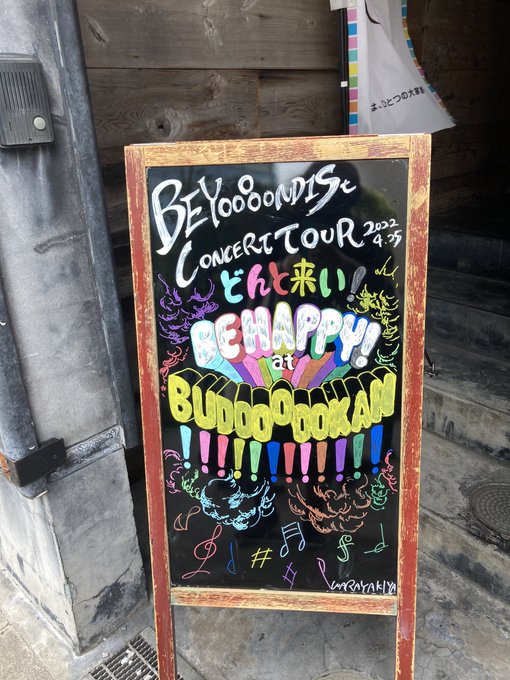 は、ひとつの大家族
BEYOOOOONDS
CONCERT TOUR
2022
4.25
どんと来い!
BEHAPPY!
at
BUDOOOOOKAN
!!!!!!!!!!!!
WARAYAKIYA